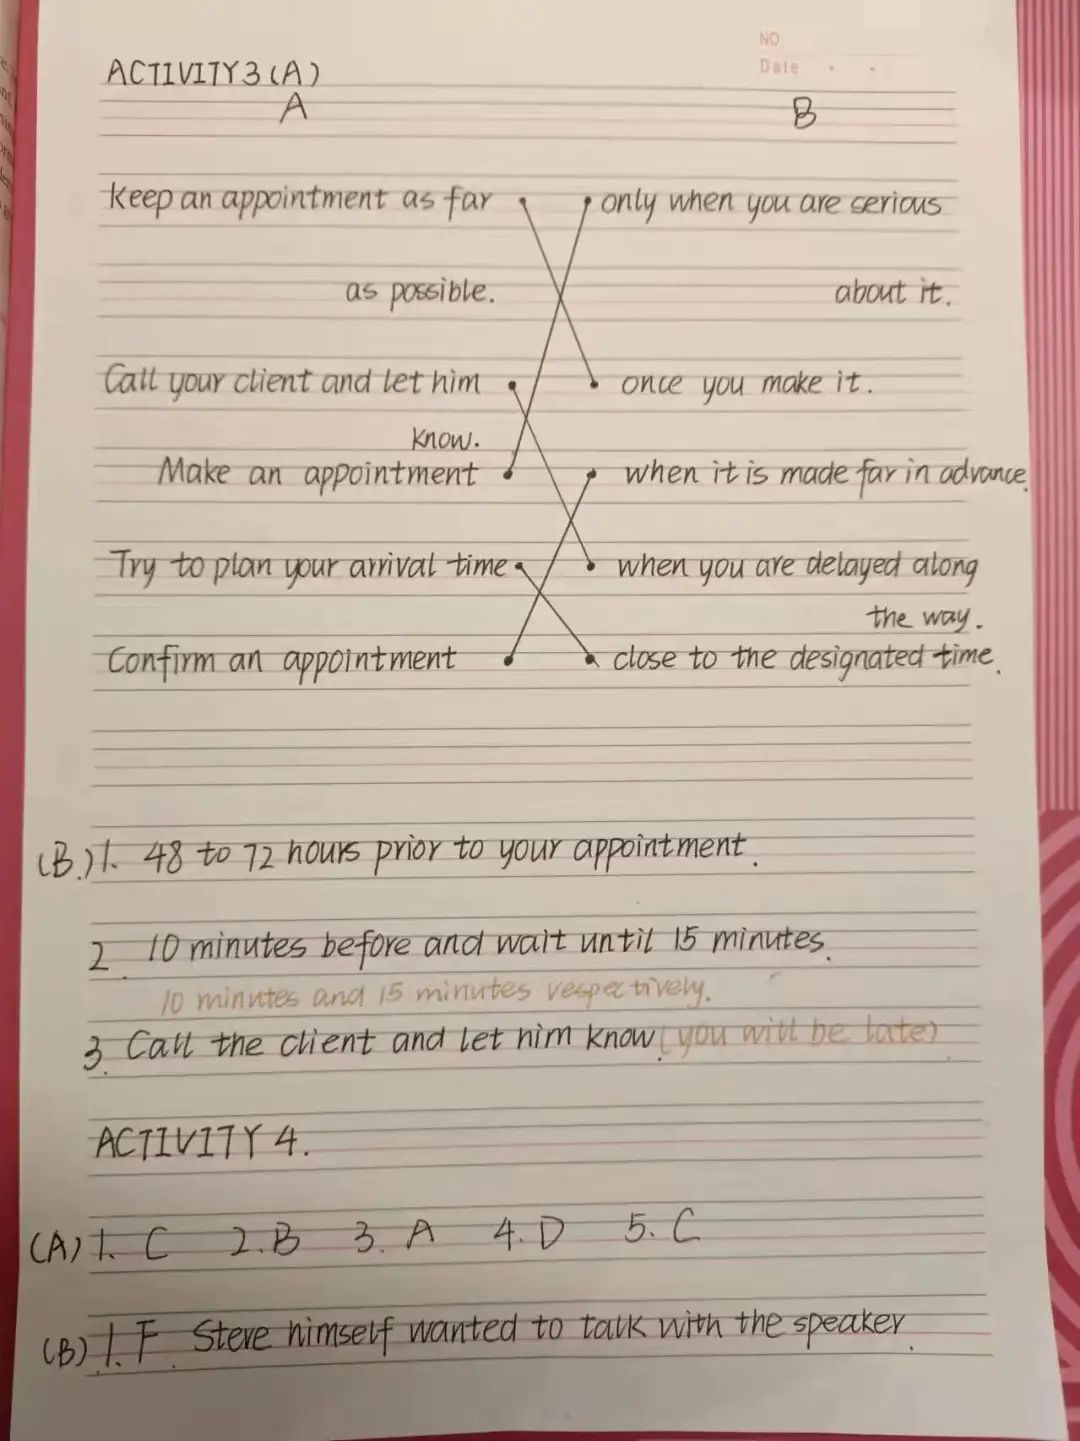 NO
Date
ACTIVITY 3 (A)
A B
keep an appointment as far only when you are serious
as possible. about it.
Call your client and let him once you make it.
know.
Make an appointment when it is made far in advance.
Try to plan your arrival time when you are delayed along
the way.
Confirm an appointment close to the designated time.
(B.) 1. 48 to 72 hours prior to your appointment.
2. 10 minutes before and wait until 15 minutes.
10 minutes and 15 minutes vespectively.
3. Call the client and let him know. (you will be late)
ACTIVITY 4.
(A) 1. C 2. B 3. A 4. D 5. C
(B) 1. F. Steve himself wanted to talk with the speaker.